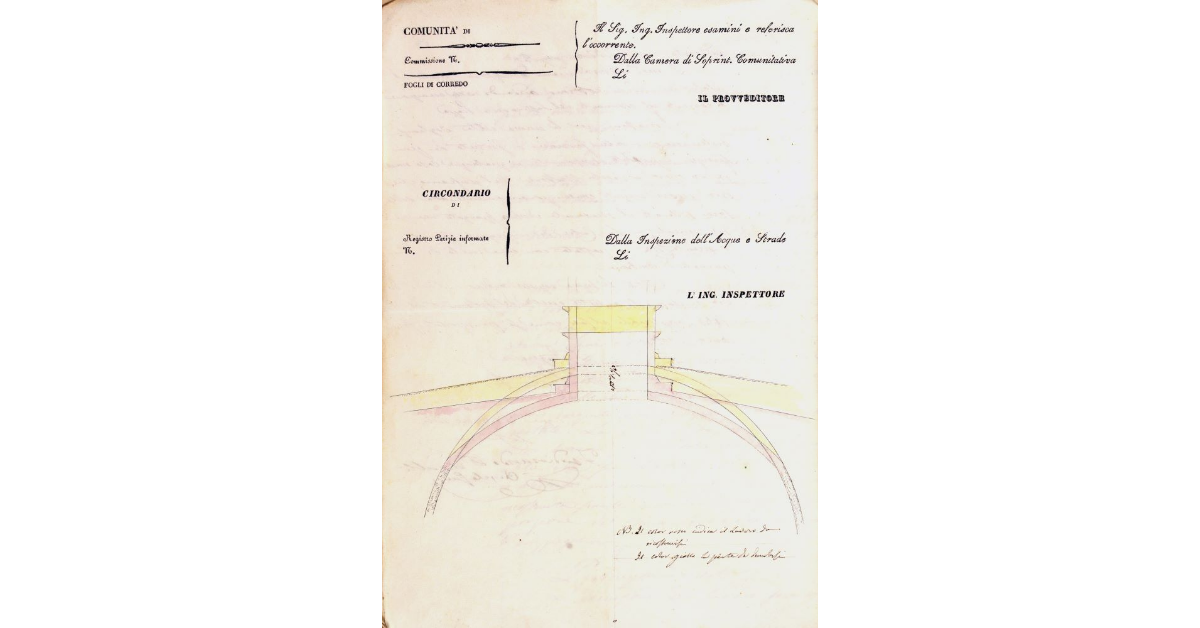 COMUNITA' DI
Commissione N.
FOGLI DI CORREDO
Il Sig. Ing. Inspettore esamini e referisca
l'occorrente.
Dalla Camera di Soprint. Comunitativa
Li
IL PROVVEDITORE
CIRCONDARIO
DI
Registro Perizie informate
N.
Dalla Inspezione dell'Acque e Strade
Li
L' ING. INSPETTORE
NB. Il color rosso indica il lavoro da
ricostruirsi
Il color giallo la parte da demolirsi